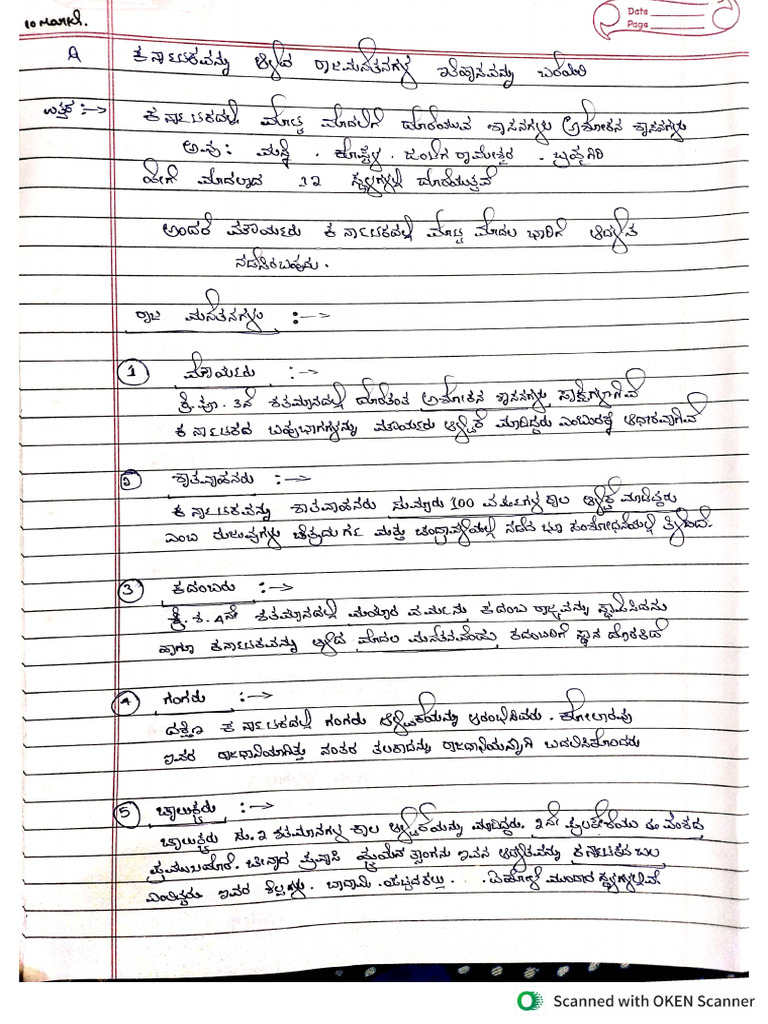 10 Marks.
Date
Page
A ಕರ್ನಾಟಕವನ್ನು ಆಳಿದ ರಾಜಮನೆತನಗಳ ಇತಿಹಾಸವನ್ನು ಬರೆಯಿರಿ
ಉತ್ತರ :->
ಕರ್ನಾಟಕದಲ್ಲಿ ಮೊಟ್ಟ ಮೊದಲಿಗೆ ದೊರೆಯುವ ಶಾಸನಗಳು ಅಶೋಕನ ಶಾಸನಗಳು
ಅವು : ಮಸ್ಕಿ . ಕೊಪ್ಪಳ . ಜಟಿಂಗ ರಾಮೇಶ್ವರ . ಬ್ರಹ್ಮಗಿರಿ
ಹೀಗೆ ಮೊದಲಾದ 12 ಸ್ಥಳಗಳಲ್ಲಿ ದೊರೆಯುತ್ತವೆ
ಅಂದರೆ ಮೌರ್ಯರು ಕರ್ನಾಟಕದಲ್ಲಿ ಮೊಟ್ಟ ಮೊದಲ ಭಾರಿಗೆ ಆಳ್ವಿಕೆ
ನಡೆಸಿರಬಹುದು .
ರಾಜ ಮನೆತನಗಳು :->
1 ಮೌರ್ಯರು :->
ಕ್ರಿ.ಪೂ. 3ನೆ ಶತಮಾನದಲ್ಲಿ ದೊರೆತಂತ ಅಶೋಕನ ಶಾಸನಗಳು ಸಾಕ್ಷಿಗಳಾಗಿವೆ
ಕರ್ನಾಟಕದ ಬಹುಭಾಗಗಳನ್ನು ಮೌರ್ಯರು ಆಳ್ವಿಕೆ ಮಾಡಿದ್ದರು ಎಂಬುದಕ್ಕೆ ಆಧಾರವಾಗಿವೆ
2 ಶಾತವಾಹನರು :->
ಕರ್ನಾಟಕವನ್ನು ಶಾತವಾಹನರು ಸುಮಾರು 100 ವರ್ಷಗಳ ಕಾಲ ಆಳ್ವಿಕೆ ಮಾಡಿದ್ದರು
ಎಂಬ ರುಜುವುಗಳು ಚಿತ್ರದುರ್ಗ ಮತ್ತು ಚಂದ್ರಾವಳಿಯಲ್ಲಿ ನಡೆದ ಭೂ ಸಂಶೋಧನೆಯಲ್ಲಿ ತಿಳಿದಿದೆ.
3 ಕದಂಬರು :->
ಕ್ರಿ.ಶ. 4ನೇ ಶತಮಾನದಲ್ಲಿ ಮಯೂರ ವರ್ಮನು ಕದಂಬ ರಾಜ್ಯವನ್ನು ಸ್ಥಾಪಿಸಿದನು
ಹಾಗೂ ಕರ್ನಾಟಕವನ್ನು ಆಳಿದ ಮೊದಲ ಮನೆತನವೆಂದು ಕದಂಬರಿಗೆ ಸ್ಥಾನ ದೊರಕಿದೆ
4 ಗಂಗರು :->
ದಕ್ಷಿಣ ಕರ್ನಾಟಕದಲ್ಲಿ ಗಂಗರು ಆಳ್ವಿಕೆಯನ್ನು ಆರಂಭಿಸಿದರು . ಕೋಲಾರವು
ಇವರ ರಾಜಧಾನಿಯಾಗಿತ್ತು ನಂತರ ತಲಕಾಡನ್ನು ರಾಜಧಾನಿಯನ್ನಾಗಿ ಬದಲಿಸಿಕೊಂಡರು
5 ಚಾಲುಕ್ಯರು :->
ಚಾಲುಕ್ಯರು ಸು. 2 ಶತಮಾನಗಳ ಕಾಲ ಆಳ್ವಿಕೆಯನ್ನು ಮಾಡಿದ್ದರು. 2ನೇ ಪುಲಕೇಶಿಯು ಈ ವಂಶದ
ಪ್ರಮುಖದೊರೆ . ಚೀನಾದ ಪ್ರವಾಸಿ ತ್ಸಾಂಗನು ಇವನ ಕರ್ನಾಟಕದ ಬಲ
ಇವರ ಶಿಲ್ಪಗಳು . ಬಾದಾಮಿ . ಪಟ್ಟದಕಲ್ಲು . . ಐಹೊಳೆ ಮುಂತಾದ ಸ್ಥಳಗಳಲ್ಲಿವೆ
Scanned with OKEN Scanner